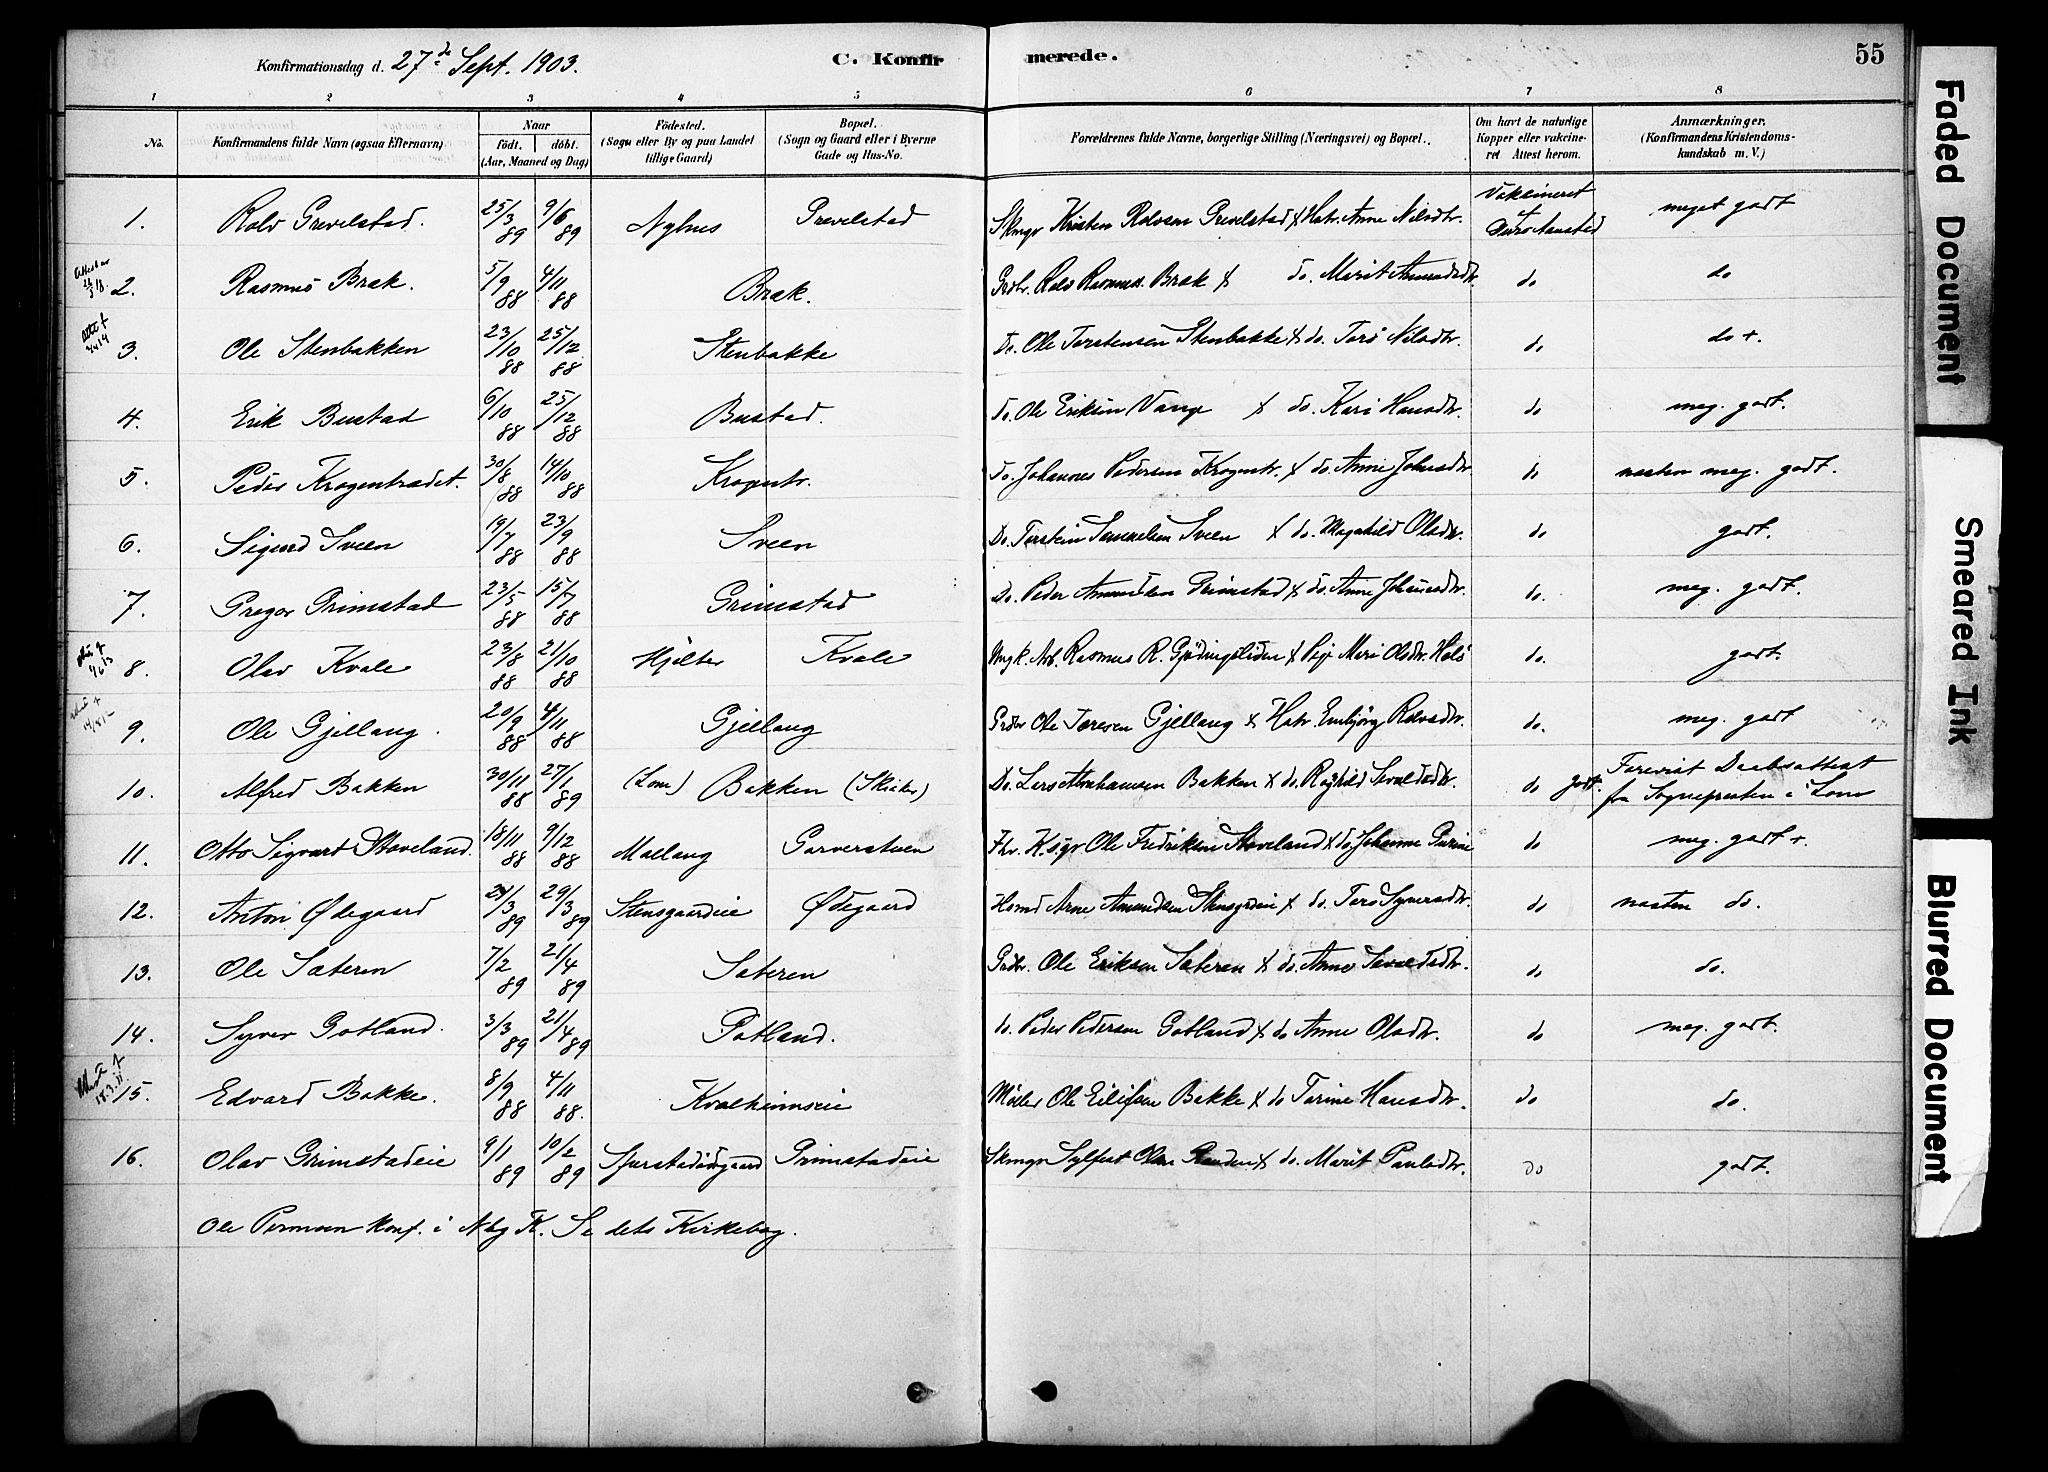 Konfirmationsdag d. 27de Sept. 1903.
C. Konfirmerede.
55
1 2 3 4 5 6 7 8
No. Konfirmandens fulde Navn (ogsaa Efternavn) Naar födt. döbt. (Aar, Maaned og Dag) Födested. (Sogn eller By og paa Landet tillige Gaard) Bopæl. (Sogn og Gaard eller i Byerne Gade og Hus-No. Forældrenes fulde Navne, borgerlige Stilling (Næringsvei) og Bopæl. Om havt de naturlige Kopper eller vakcineret Attest herom. Anmærkninger. (Konfirmandens Kristendomskundskab m. V.)
1. Rolv Grevelstad. 25/3 89 9/6 89 Nyhus Grevelstad Kristen Rolvsen Grevelstad & Hstr. Anne Nilsdtr. Vakcineret meget godt
2. Rasmus Brak. 5/9 88 4/11 88 Brak. Grdbr. Rolv Rasmus. Brak & do. Marit Amundsdtr. do do
3. Ole Stenbakken 23/10 88 25/12 88 Stenbakke Do. Ole Torstensen Stenbakke & do. Torö Nilsdtr. do do +.
4. Erik Bustad 6/10 88 25/12 88 Bustad. do. Ole Eriksen Vange & do. Kari Hansdtr. do meg. godt.
5. Peder Krogentrædet. 30/8 88 14/10 88 Krogentr. Do. Johannes Pedersen Krogentr. & do. Anne Johnsdtr. do næsten meg. godt.
6. Sigurd Sveen 19/7 88 23/9 88 Sveen Do. Torstein Samuelsen Sveen & do. Magnhild Olsdtr. do godt.
7. Gregor Grimstad 23/5 88 15/7 88 Grimstad Do. Peder Amundsen Grimstad & do. Anne Johansdtr. do. meg. godt.
8. Olav Kvale 23/8 88 21/10 88 Hjelter Kvale Ungk. Arb. Rasmus R. Gjödingslien & Pige Mari Olsdtr. do. godt.
9. Ole Gjellang. 20/9 88 4/11 88 Gjellang Grdbr Ole Toresen Gjellang & Hstr. Embjörg Rolvsdtr. do. meg. godt
10. Alfred Bakken 30/11 88 27/1 89 (Lom) Bakken (Skiaker) Do. Lars Abrahamsen Bakken & do. Ragnhild Sevaldsdtr. do godt. Forevist Daabsattest fra Sognepresten i Lom
11. Otto Sigvart Stoveland. 18/11 88 9/12 88 Moelang Garverstuen Ole Fredriksen Stoveland & do. Johanne do meg. godt +.
12. Anton Ødegaard 24/3 89 29/3 89 Stensgaardeie Ødegaard Hsmd Arne Amundsen Stensgrdeie & do. Torö Syversdtr. do næsten do.
13. Ole Sæteren 7/2 89 21/4 89 Sæteren Grdbr. Ole Eriksen Sæteren & do. Anne Sevaldsdtr. do do.
14. Syver Gotland. 3/3 89 21/4 89 Gotland. do. Peder Pedersen Gotland & do Anne Olsdtr. do meg. godt.
15. Edvard Bakke. 8/9 88 4/11 88. Kvalheimseie Möller Ole Eilifsen Bakke & do Torine Hansdtr. do do.
16. Olav Grimstadeie 9/1 89 10/2 89 Grimstadeie Sylfest Olsen & do. Marit Paulsdtr. do godt.
Ole Pormoen konf. i Nbg K. Se dets Kirkebog.
Faded Document
Smeared Ink
Blurred Document